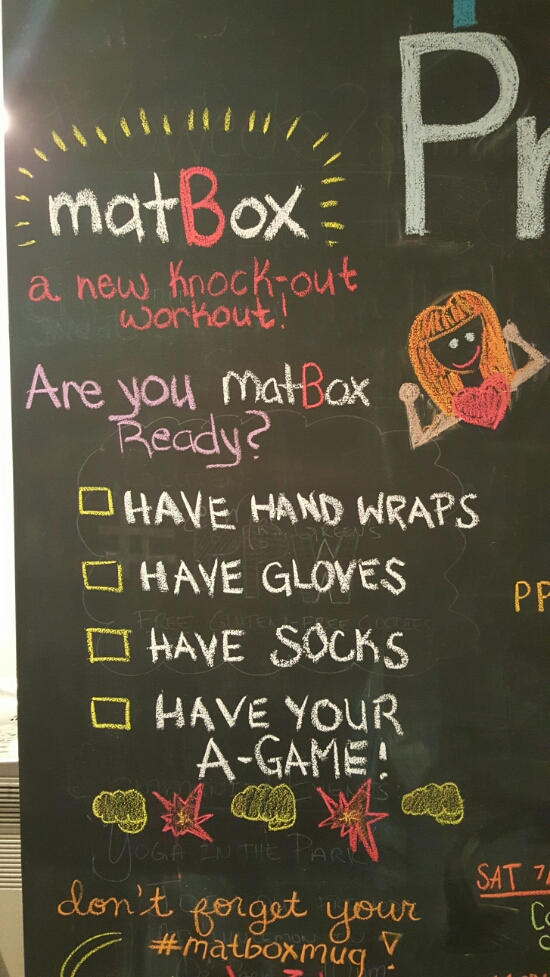 matBox
a new knock-out
workout!
Are you matBox
Ready?
HAVE HAND WRAPS
HAVE GLOVES
HAVE SOCKS
HAVE YOUR
A-GAME!
YOGA IN THE PARK
don't forget your
#matboxmug!
Pr
PP
SAT 7/